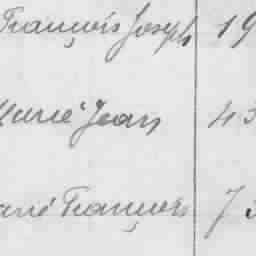 François Joseph 19
Marie Jean 43
François 73